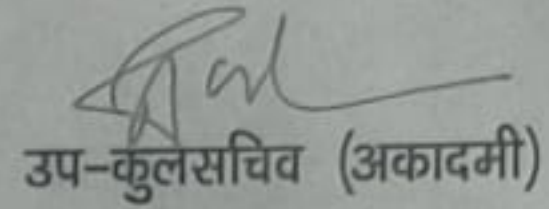 उप-कुलसचिव (अकादमी)